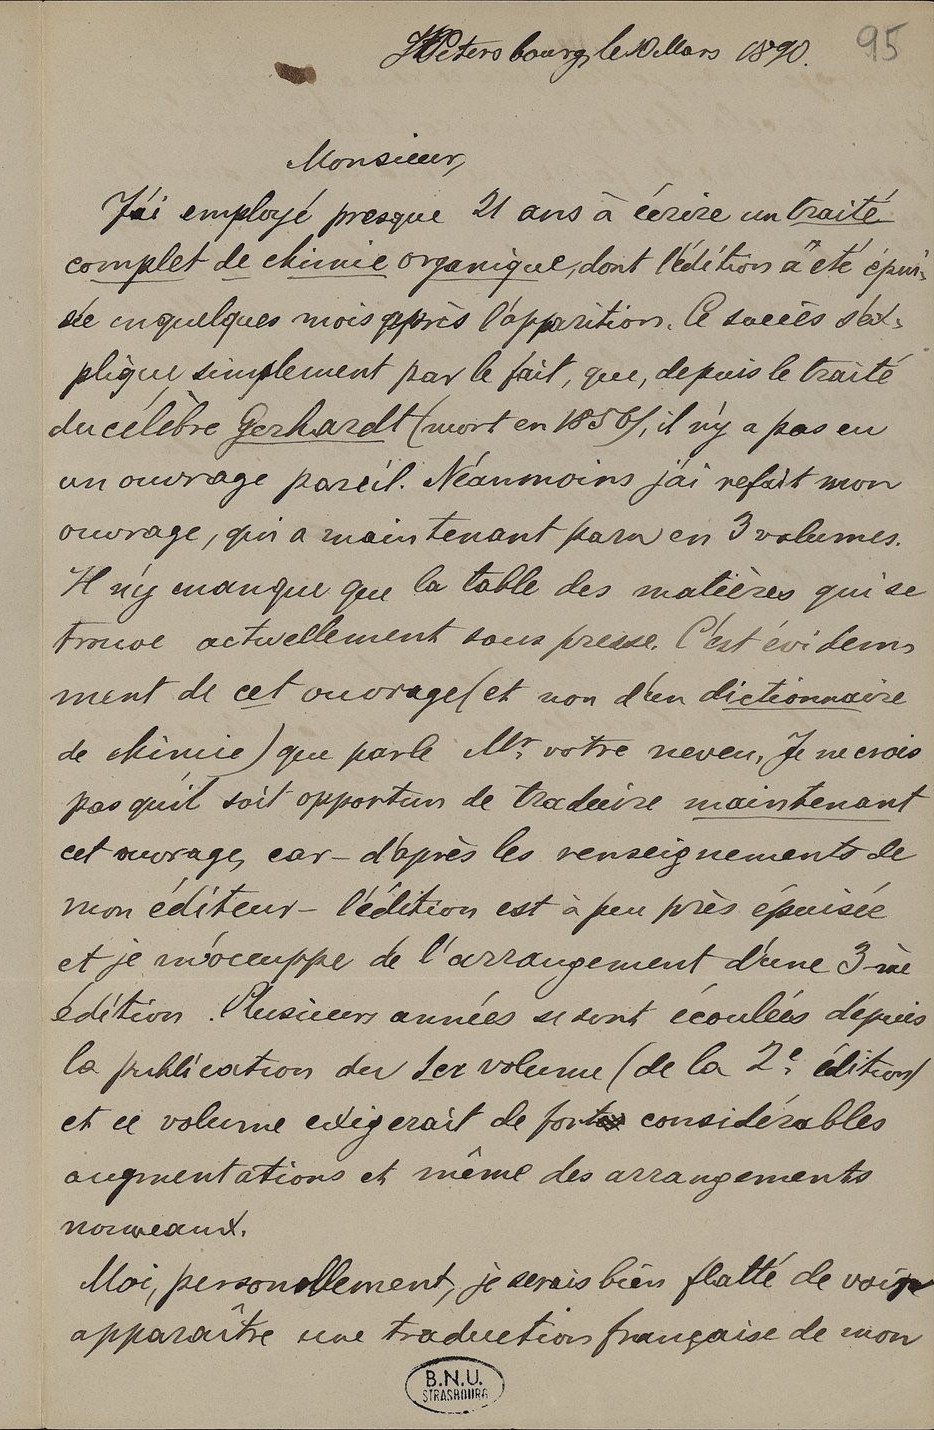 Pétersbourg, le 10 Mars 1890.
95
Monsieur,
J'ai employé presque 21 ans à écrire un traité
complet de chimie organique, dont l'édition a été épui-
sée en quelques mois après l'apparition. Ce succès s'ex-
plique simplement par le fait, que, depuis le traité
du célèbre Gerhardt (mort en 1856), il n'y a pas eu
un ouvrage pareil. Néanmoins j'ai refait mon
ouvrage, qui a maintenant paru en 3 volumes.
Il n'y manque que la table des matières qui se
trouve actuellement sous presse. C'est évidem-
ment de cet ouvrage (et non d'un dictionnaire
de chimie) que parle Mr. votre neveu. Je ne crois
pas qu'il soit opportun de traduire maintenant
cet ouvrage, car – d'après les renseignements de
mon éditeur – l'édition est à peu près épuisée
et je m'occuppe de l'arrangement d'une 3-me
édition. Plusieurs années se sont écoulées dépuis
la publication du 1er volume (de la 2e. édition)
et ce volume exigerait de considérables
augmentations et même des arrangements
nouveaux.
Moi, personellement, je serais bien flatté de voir
apparaître une traduction française de mon
B.N.U.
STRASBOURG